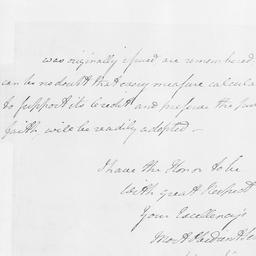 was originally issued are remembered
can be no doubt that every measure calcula
to support its credit and preserve the pu
faith will be readily adopted —
I have the Honor to be
with great Respect
Your Excellency's
most Obedient